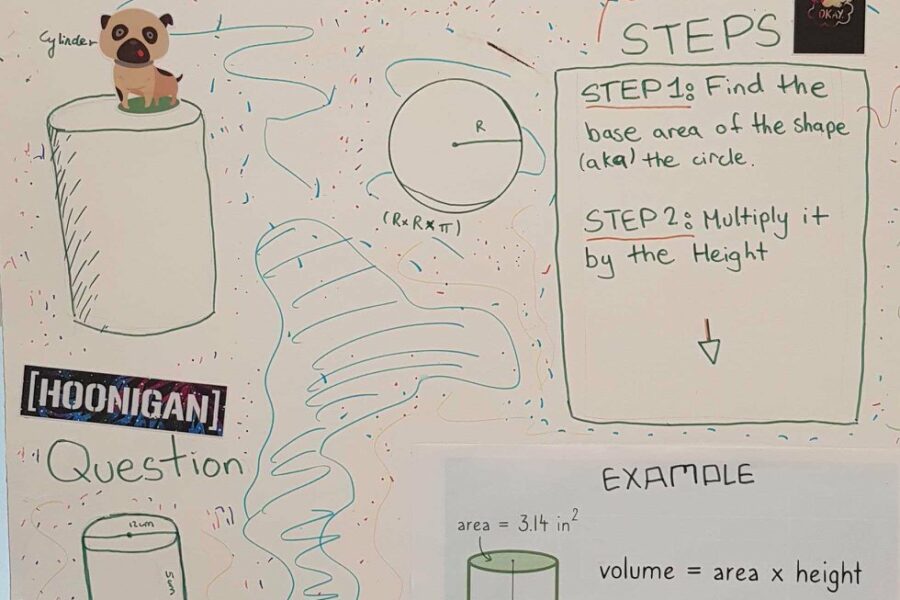 Cylinder
OKAY.
STEPS
STEP 1: Find the
base area of the shape
(aka) the circle.
R
(R×R×π)
STEP 2: Multiply it
by the Height
[HOONIGAN]
Question
12cm
EXAMPLE
area = 3.14 in²
volume = area x height